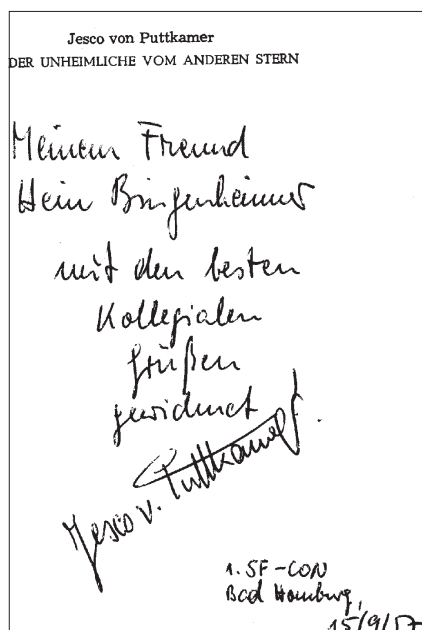 Jesco von Puttkamer
DER UNHEIMLICHE VOM ANDEREN STERN
Meinem Freund
Hein Bingenheimer
mit den besten
Kollegialen
Grüßen
gewidmet
Jesco v. Puttkamer.
1. SF-CON
Bad Homburg,
15/9/57